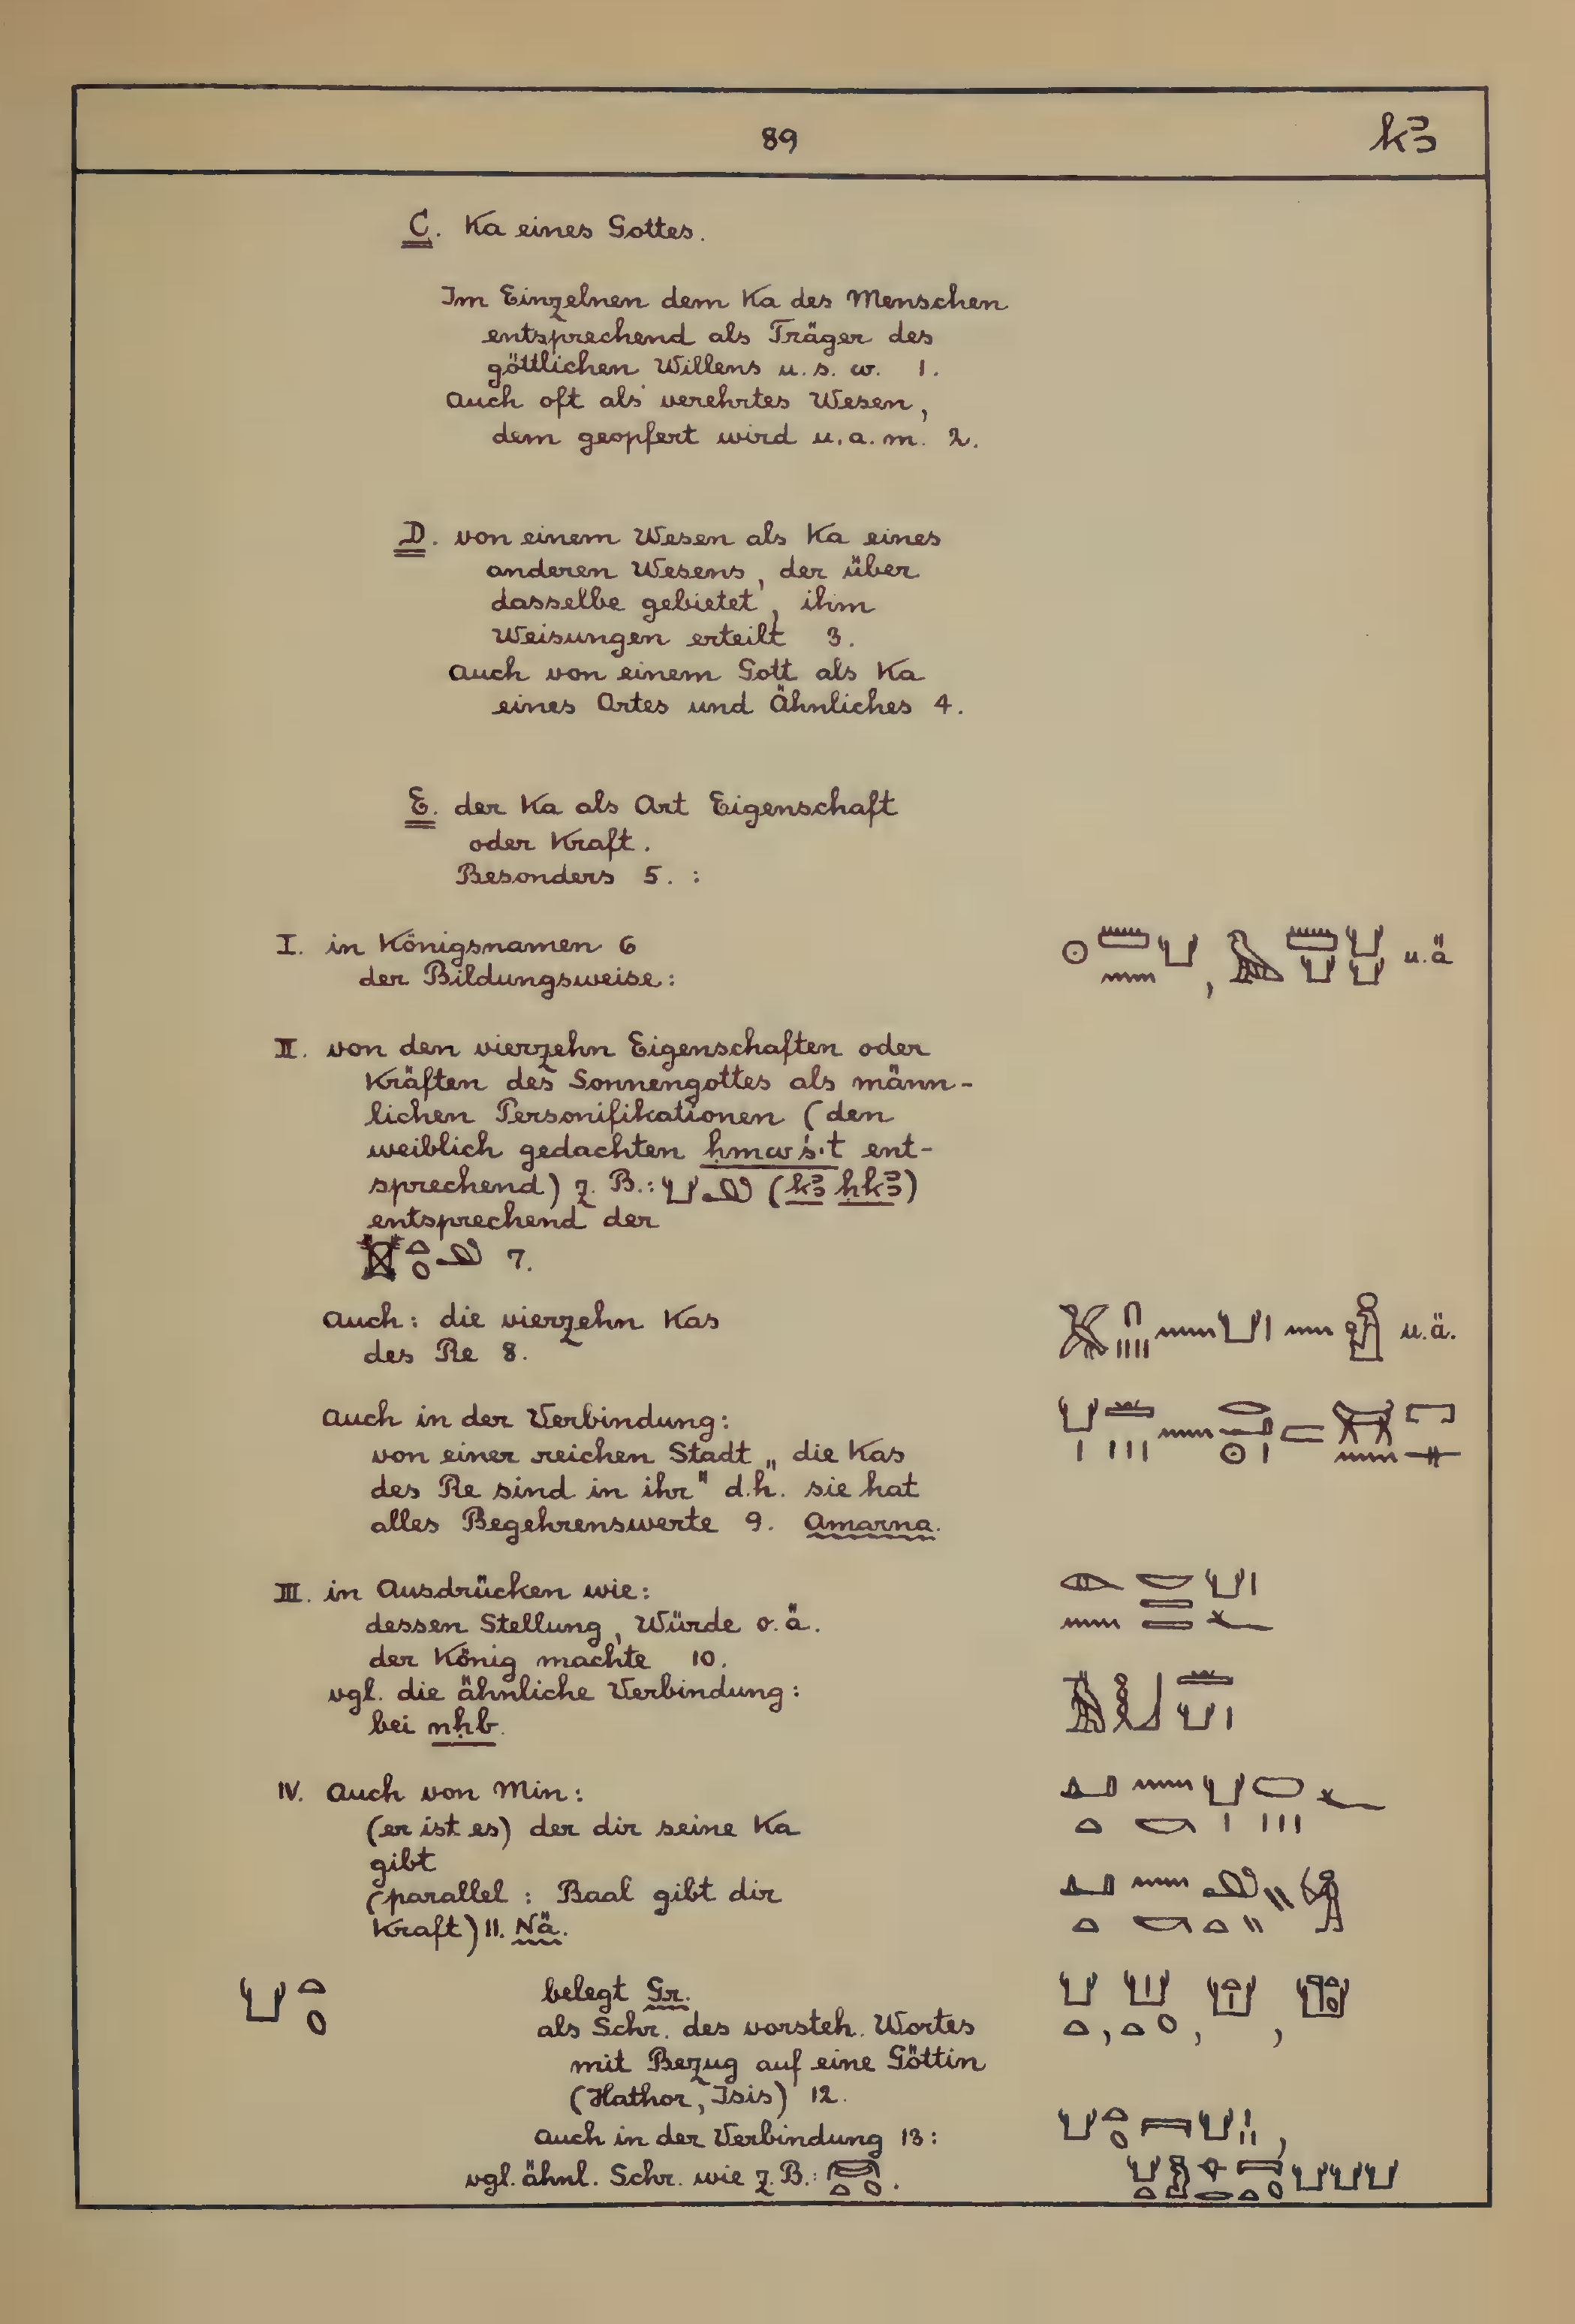 89 kꜣ
C. Ka eines Gottes.
Im Einzelnen dem Ka des Menschen
entsprechend als Träger des
göttlichen Willens u. s. w. 1.
Auch oft als verehrtes Wesen,
dem geopfert wird u. a. m. 2.
D. von einem Wesen als Ka eines
anderen Wesens, der über
dasselbe gebietet, ihm
Weisungen erteilt 3.
Auch von einem Gott als Ka
eines Ortes und Ähnliches 4.
E. der Ka als Art Eigenschaft
oder Kraft.
Besonders 5. :
I. in Königsnamen 6
der Bildungsweise: , u.ä
II. von den vierzehn Eigenschaften oder
Kräften des Sonnengottes als männ-
lichen Personifikationen (den
weiblich gedachten ḥmwś·t ent-
sprechend) z. B.: 𓂓𓄂 (kꜣ ḥkꜣ)
entsprechend der
7.
Auch: die vierzehn Kas
des Re 8. u.ä.
Auch in der Verbindung:
von einer reichen Stadt „die Kas
des Re sind in ihr" d.h. sie hat
alles Begehrenswerte 9. Amarna.
III. in Ausdrücken wie:
dessen Stellung, Würde o.ä.
der König machte 10.
vgl. die ähnliche Verbindung:
bei nḥb.
IV. Auch von Min:
(er ist es) der dir seine Ka
gibt
(parallel : Baal gibt dir
Kraft) 11. Nä.
𓂓𓏏𓆇 belegt Gr.
als Schr. des vorsteh. Wortes
mit Bezug auf eine Göttin
(Hathor, Isis) 12.
auch in der Verbindung 13:
vgl. ähnl. Schr. wie z. B.: .